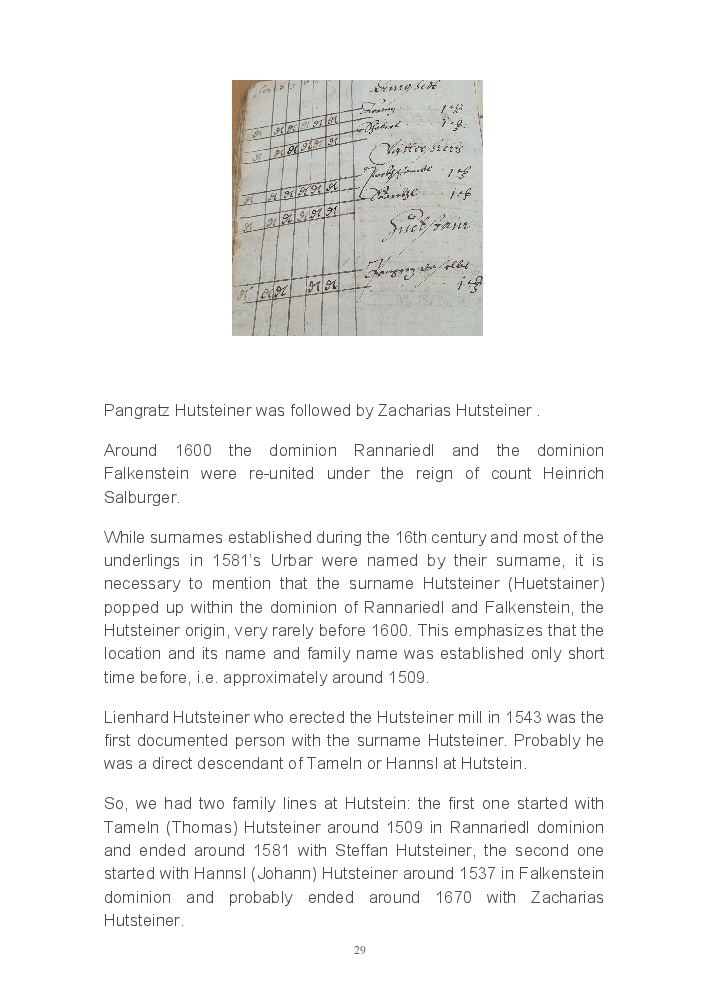 Huetstain
Pangratz Hutsteiner was followed by Zacharias Hutsteiner .
Around 1600 the dominion Rannariedl and the dominion
Falkenstein were re-united under the reign of count Heinrich
Salburger.
While surnames established during the 16th century and most of the
underlings in 1581's Urbar were named by their surname, it is
necessary to mention that the surname Hutsteiner (Huetstainer)
popped up within the dominion of Rannariedl and Falkenstein, the
Hutsteiner origin, very rarely before 1600. This emphasizes that the
location and its name and family name was established only short
time before, i.e. approximately around 1509.
Lienhard Hutsteiner who erected the Hutsteiner mill in 1543 was the
first documented person with the surname Hutsteiner. Probably he
was a direct descendant of Tameln or Hannsl at Hutstein.
So, we had two family lines at Hutstein: the first one started with
Tameln (Thomas) Hutsteiner around 1509 in Rannariedl dominion
and ended around 1581 with Steffan Hutsteiner, the second one
started with Hannsl (Johann) Hutsteiner around 1537 in Falkenstein
dominion and probably ended around 1670 with Zacharias
Hutsteiner.
29